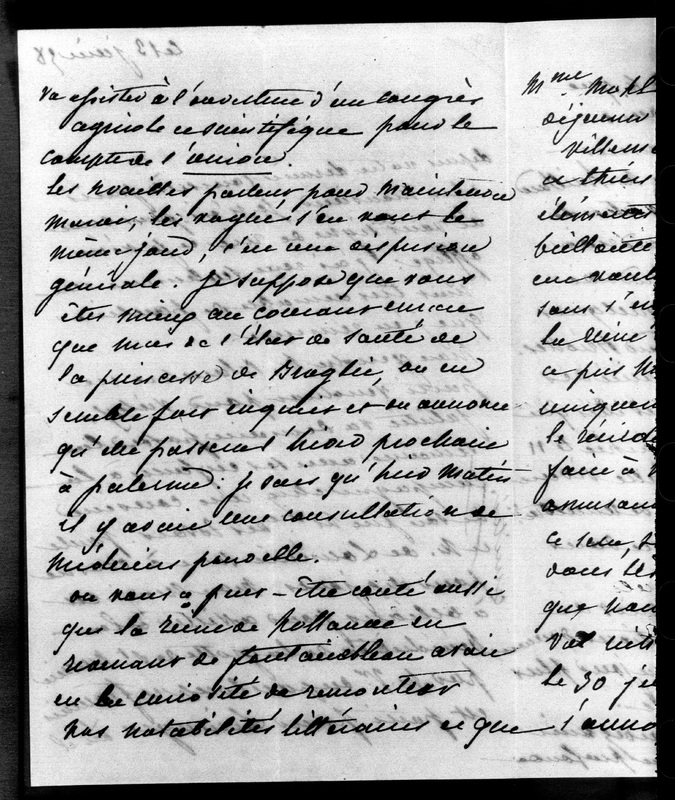 va assister à l'ouverture d'un congrès
agricole et scientifique pour le
compte de l'union.
les noailles partent pour maintenon
mardi, les vogüé s'en vont le
même jour, c'est une dispersion
générale. je suppose que vous
êtes mieux au courant encore
que moi de l'état de santé de
la princesse de Broglie, on en
semble fort inquiet et on annonce
qu'elle passera l'hiver prochain
à palerme: je sais qu'hier matin
il y avait une consultation de
médecins pour elle.
on vous a peut-être conté aussi
que la reine de hollande en
revenant de fontainebleau avait
eu la curiosité de rencontrer
nos notabilités littéraires et que
Mme Mohl
déjeuner
Villem
et thiers
éléments
en
sans s'en
la reine
a pris
uniquem
le
faire à
amusan
ce
dans les
que nou
le 30 je
s'anno